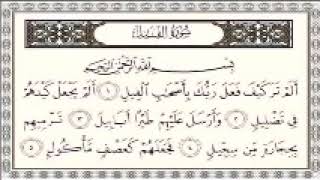 سورة الفيل
بسم الله الرحمن الرحيم
ألم تر كيف فعل ربك بأصحاب الفيل ١ ألم يجعل كيدهم
في تضليل ٢ وأرسل عليهم طيرا أبابيل ٣ ترميهم
بحجارة من سجيل ٤ فجعلهم كعصف مأكول ٥